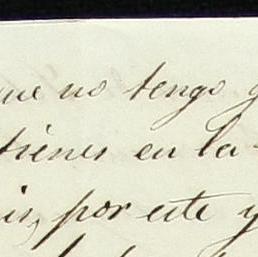 que no tengo
tienes en la
por este y